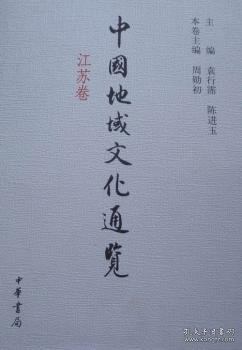 主　编　袁行霈　陈进玉
本卷主编　周勋初
中國地域文化通覽
江苏卷
中華書局